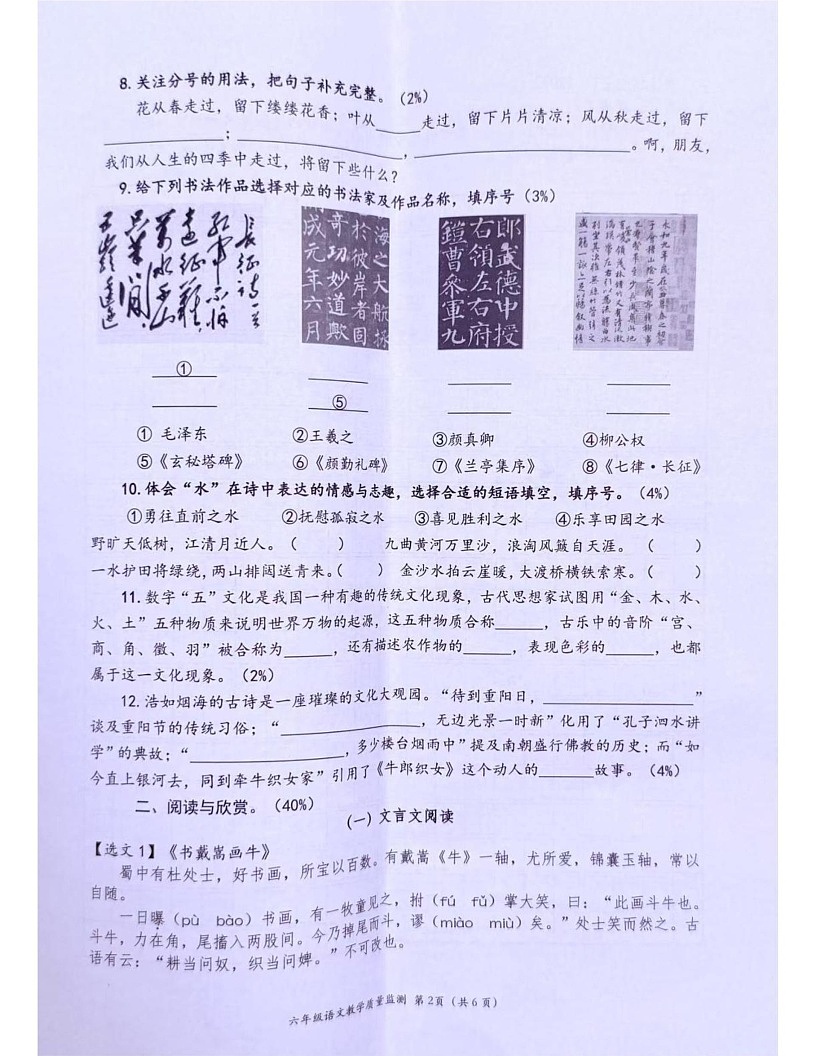 8.关注分号的用法，把句子补充完整。(2%)
花从春走过，留下缕缕花香；叶从_____走过，留下片片清凉；风从秋走过，留下
______________；____________________，__________________________。啊，朋友，
我们从人生的四季中走过，将留下些什么？
9.给下列书法作品选择对应的书法家及作品名称，填序号(3%)
长征诗一首
红军不怕
远征难
万水千山
只等闲
五岭逶迤
海之大航拯
於彼岸者固
奇功妙道欤
成元年六月
郎武德中授
右领左右府
铠曹参军九
永和九年岁在
①
⑤
① 毛泽东 ②王羲之 ③颜真卿 ④柳公权
⑤《玄秘塔碑》 ⑥《颜勤礼碑》 ⑦《兰亭集序》 ⑧《七律·长征》
10.体会“水”在诗中表达的情感与志趣，选择合适的短语填空，填序号。(4%)
①勇往直前之水 ②抚慰孤寂之水 ③喜见胜利之水 ④乐享田园之水
野旷天低树，江清月近人。（ ） 九曲黄河万里沙，浪淘风簸自天涯。（ ）
一水护田将绿绕，两山排闼送青来。（ ） 金沙水拍云崖暖，大渡桥横铁索寒。（ ）
11.数字“五”文化是我国一种有趣的传统文化现象，古代思想家试图用“金、木、水、
火、土”五种物质来说明世界万物的起源，这五种物质合称_____，古乐中的音阶“宫、
商、角、徵、羽”被合称为_____，还有描述农作物的_____，表现色彩的_____，也都
属于这一文化现象。(2%)
12.浩如烟海的古诗是一座璀璨的文化大观园。“待到重阳日，________________”
谈及重阳节的传统习俗；“________________，无边光景一时新”化用了“孔子泗水讲
学”的典故；“________________，多少楼台烟雨中”提及南朝盛行佛教的历史；而“如
今直上银河去，同到牵牛织女家”引用了《牛郎织女》这个动人的______故事。(4%)
二、阅读与欣赏。(40%)
(一)文言文阅读
【选文1】《书戴嵩画牛》
蜀中有杜处士，好书画，所宝以百数。有戴嵩《牛》一轴，尤所爱，锦囊玉轴，常以
自随。
一日曝（pù bào）书画，有一牧童见之，拊（fú fǔ）掌大笑，曰：“此画斗牛也。
斗牛，力在角，尾搐入两股间。今乃掉尾而斗，谬（miào miù）矣。”处士笑而然之。古
语有云：“耕当问奴，织当问婢。”不可改也。
六年级语文教学质量监测 第2页（共6页）